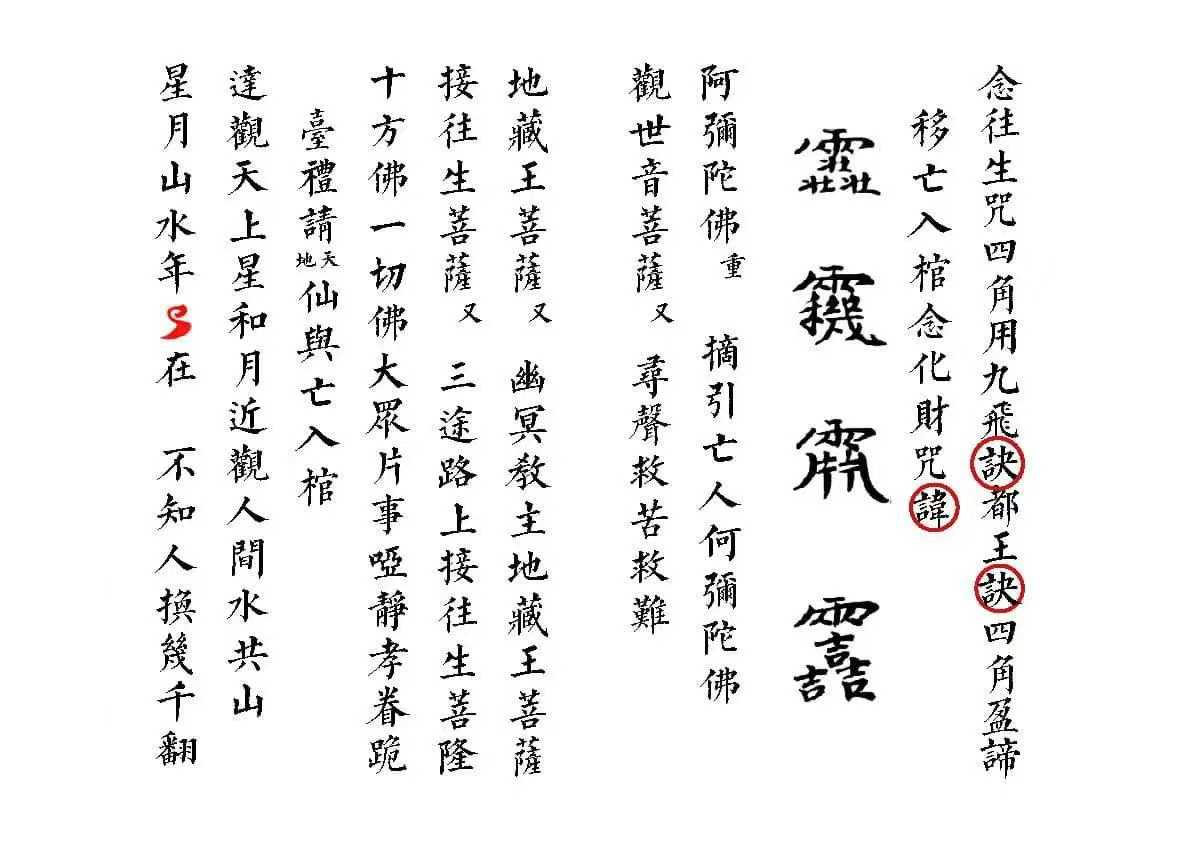 念往生咒四角用九飛訣都王訣四角盈諦
移亡入棺念化財咒諱
阿彌陀佛重　摘引亡人何彌陀佛
觀世音菩薩又　尋聲救苦救難
地藏王菩薩又　幽冥教主地藏王菩薩
接往生菩薩又　三途路上接往生菩隆
十方佛一切佛大眾片事啞靜孝眷跪
臺禮請天地仙與亡入棺
達觀天上星和月近觀人間水共山
星月山水年〻在　不知人換幾千翻